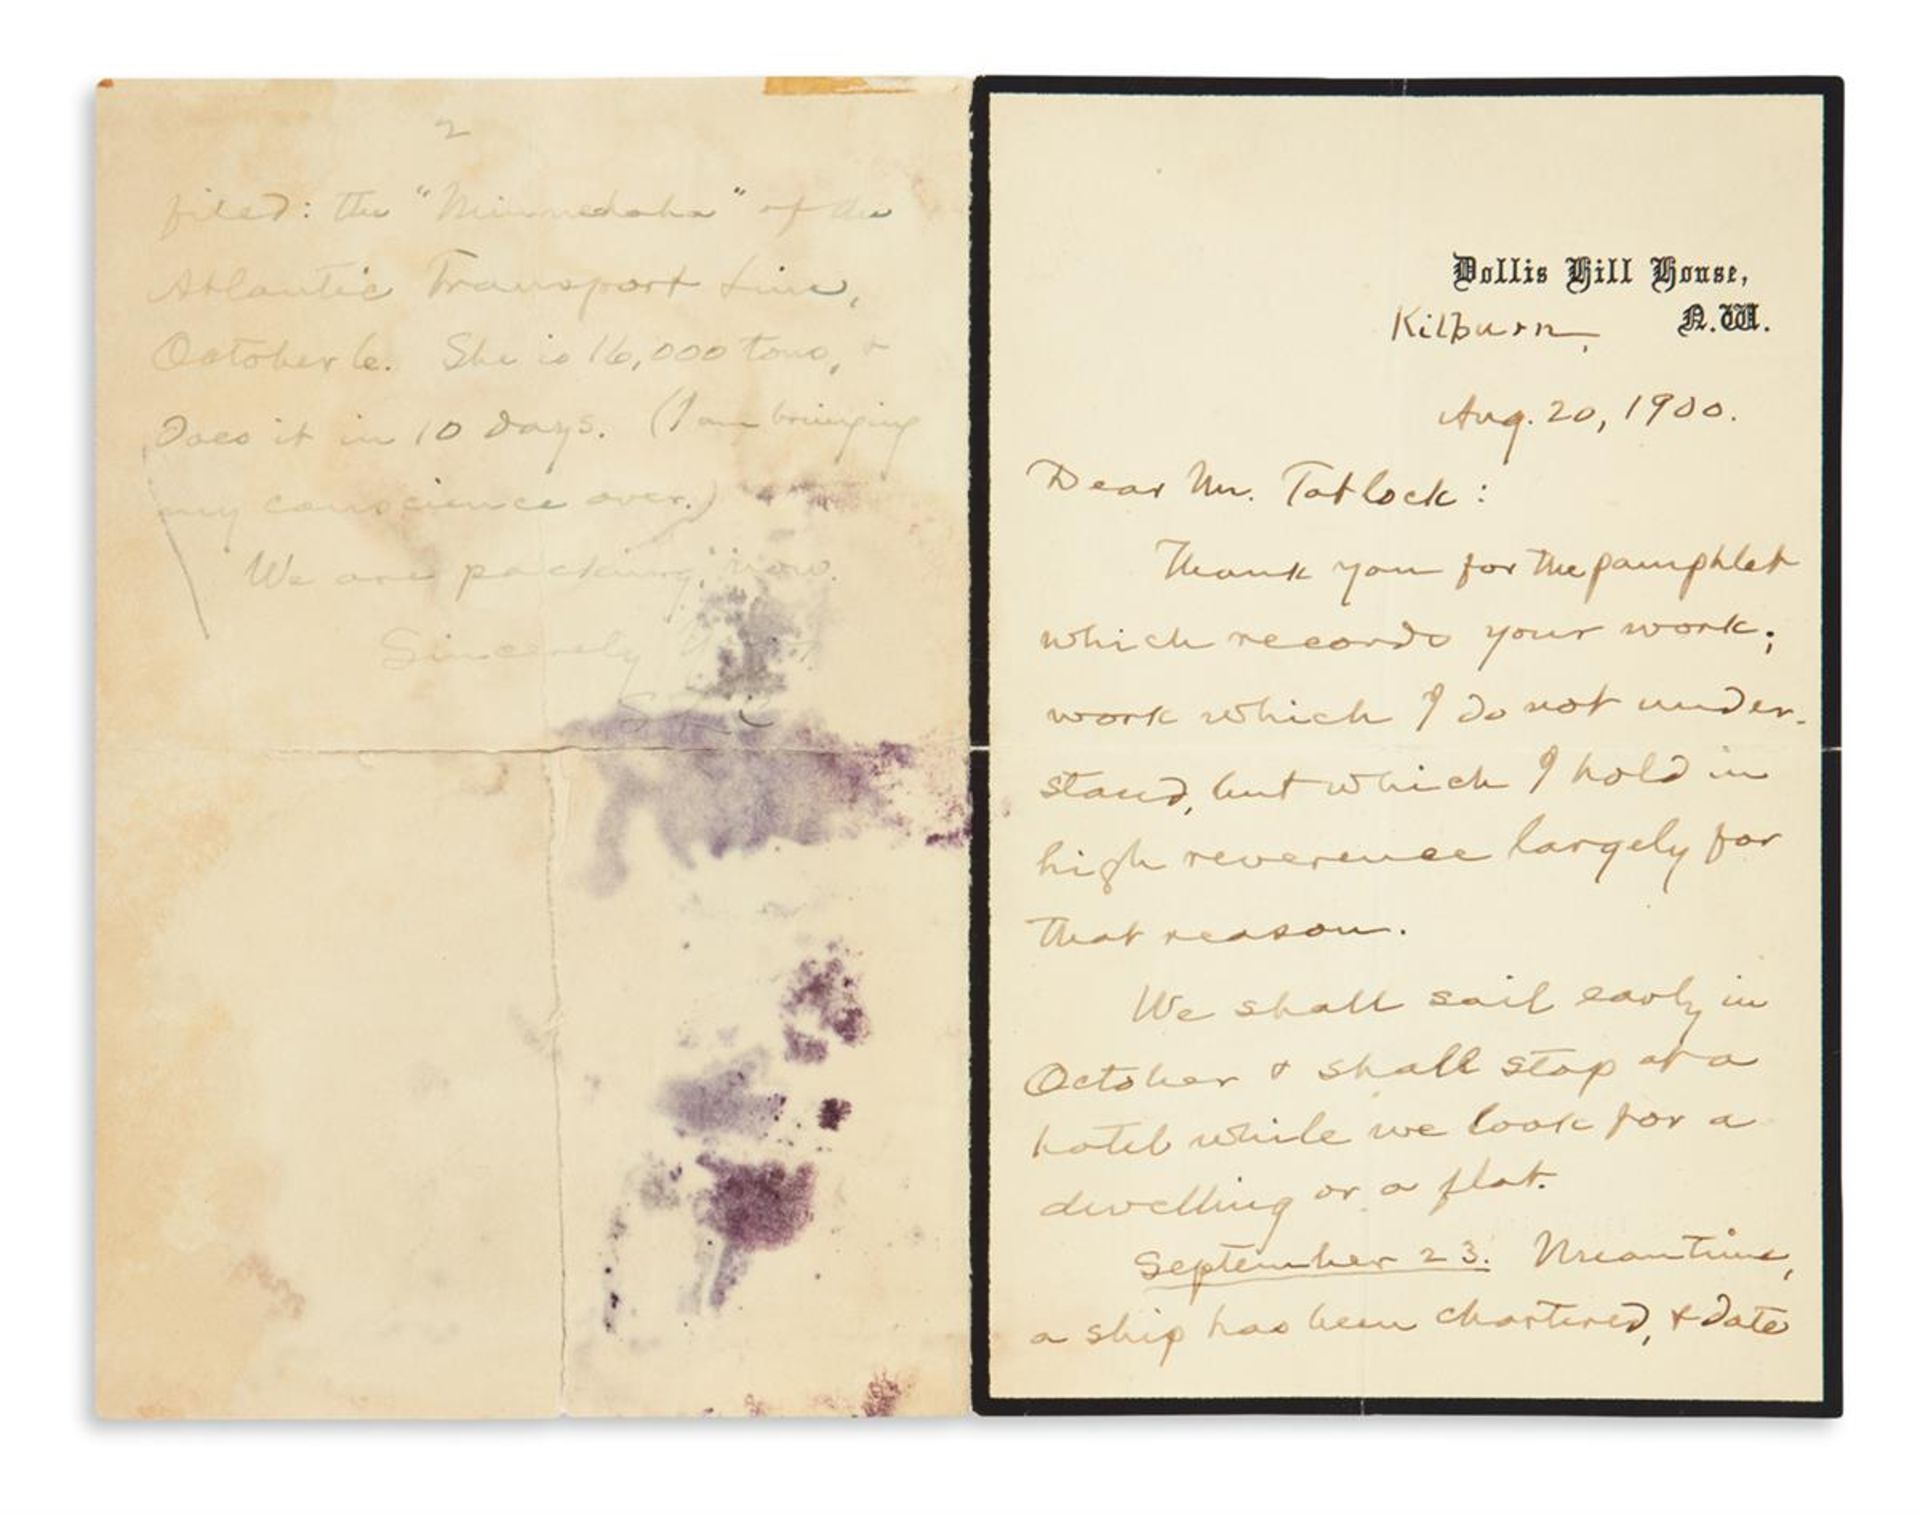 Dollis Hill House,
Kilburn, N.W.
Aug. 20, 1900.
Dear Mr. Tatlock:
Thank you for the pamphlet
which records your work;
work which I do not under-
stand, but which I hold in
high reverence largely for
that reason.
We shall sail early in
October & shall stop at a
hotel while we look for a
dwelling or a flat.
September 23. Meantime,
a ship has been chartered, & date
2
fixed: the "Minnedaha" of the
Atlantic Transport Line,
October 6. She is 16,000 tons, &
does it in 10 days. (I am bringing
my conscience over.)
We are packing, now.
Sincerely